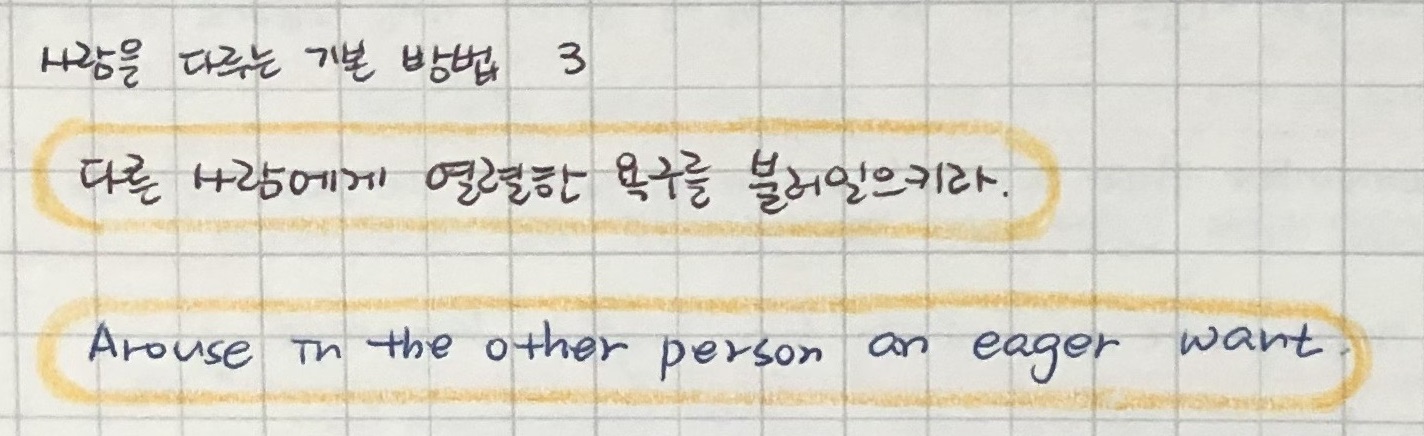 사람을 다루는 기본 방법 3
다른 사람에게 열렬한 욕구를 불러일으키라.
Arouse in the other person an eager want.